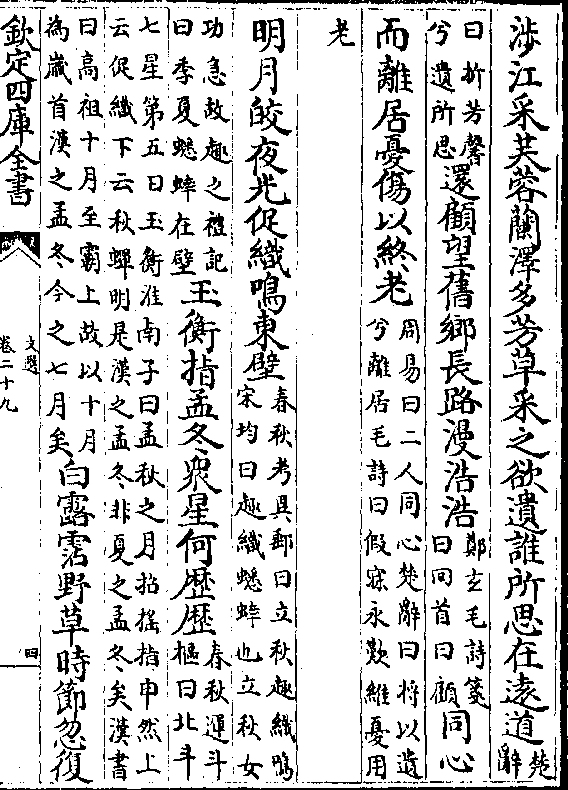 涉江采芙蓉蘭澤多芳草采之欲遺誰所思在遠道楚辭
曰折芳馨兮遺所思還顧望舊鄉長路漫浩浩鄭玄毛詩箋曰回首曰顧同心
而離居憂傷以終老周易曰二人同心楚辭曰將以遺兮離居毛詩曰假寐永歎維憂用
老
明月皎夜光促織鳴東壁春秋考異郵曰立秋趣織鳴宋均曰趣織蟋蟀也立秋女
功急故趣之禮記曰季夏蟋蟀在壁玉衡指孟冬衆星何歷歷春秋運斗樞曰北斗
七星第五曰玉衡淮南子曰孟秋之月招搖指申然上云促織下云秋蟬明是漢之孟冬非夏之孟冬矣漢書
曰高祖十月至霸上故以十月為歲首漢之孟冬今之七月矣白露霑野草時節忽復
欽定四庫全書
文選
卷二十九
四